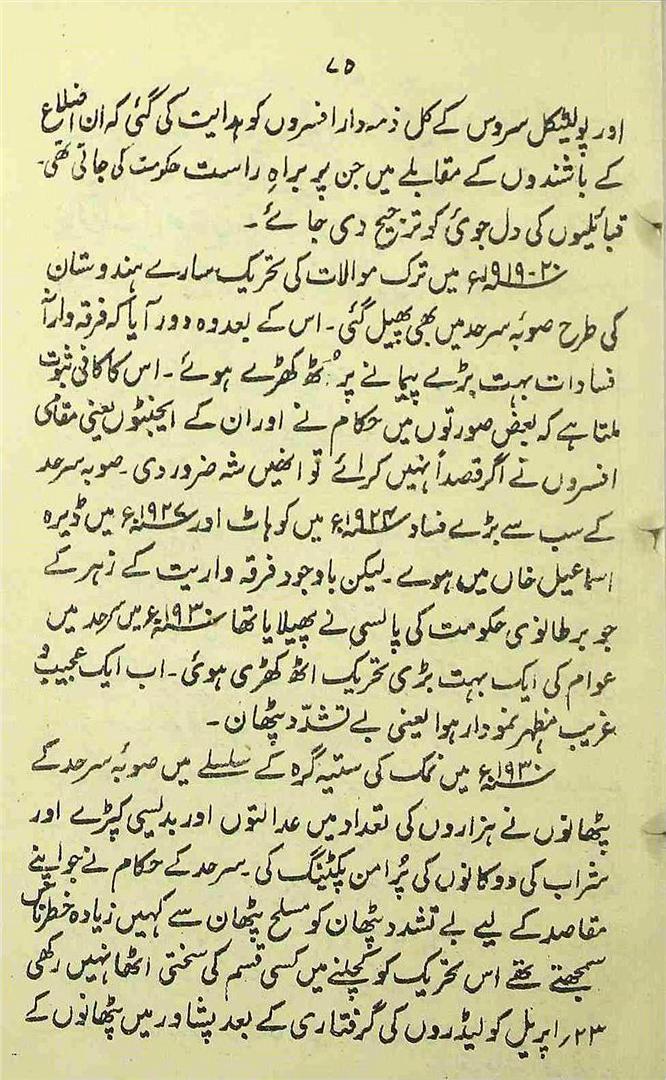 ۷۵
اور پولیٹکل سروس کے کل ذمہ دار افسروں کو ہدایت کی گئی کہ ان اضلاع
کے باشندوں کے مقابلے میں جن پر براہِ راست حکومت کی جاتی تھی۔
قبائلیوں کی دل جوئی کو ترجیح دی جائے۔
۲۰-۱۹۱۹ء میں ترک موالات کی تحریک سارے ہندوستان
کی طرح صوبہ سرحد میں بھی پھیل گئی۔ اس کے بعد وہ دور آیا کہ فرقہ وارانہ
فسادات بہت بڑے پیمانے پر اُٹھ کھڑے ہوئے۔ اس کا کافی ثبوت
ملتا ہے کہ بعض صورتوں میں حکام نے اور ان کے ایجنٹوں یعنی مقامی
افسروں نے اگر قصداً نہیں کرائے تو انھیں شہ ضرور دی۔ صوبہ سرحد
کے سب سے بڑے فساد ۱۹۲۴ء میں کوہاٹ اور ۱۹۲۷ء میں ڈیرہ
اسماعیل خاں میں ہوے۔ لیکن باوجود فرقہ واریت کے زہر کے
جو برطانوی حکومت کی پالسی نے پھیلایا تھا ۱۹۳۰ء میں سرحد میں
عوام کی ایک بہت بڑی تحریک اٹھ کھڑی ہوئی۔ اب ایک عجیب و
غریب مظہر نمودار ہوا یعنی بے تشدّد پٹھان۔
۱۹۳۰ء میں نمک کی ستیہ گرہ کے سلسلے میں صوبہ سرحد کے
پٹھانوں نے ہزاروں کی تعداد میں عدالتوں اور بدلیسی کپڑے اور
شراب کی دوکانوں کی پُر امن پکٹنگ کی۔ سرحد کے حکام نے جو اپنے
مقاصد کے لیے بے تشدد پٹھان کو مسلح پٹھان سے کہیں زیادہ خطرناک
سمجھتے تھے اس تحریک کو کچلنے میں کسی قسم کی سختی اٹھا نہیں رکھی
۲۳؍ اپریل کو لیڈروں کی گرفتاری کے بعد پشاور میں پٹھانوں کے